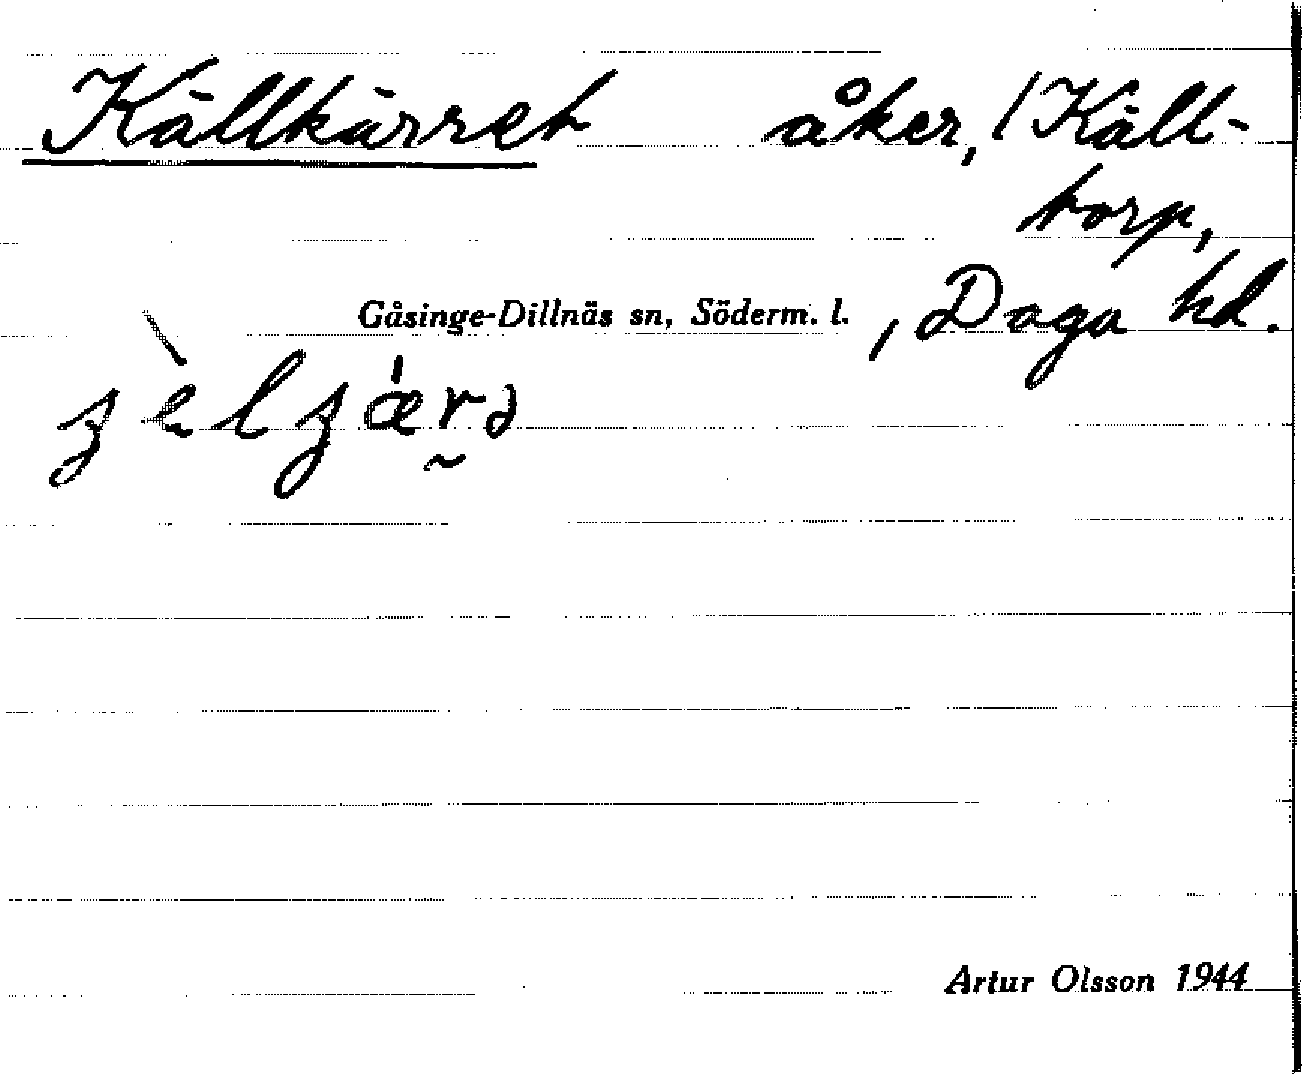 Källkärret åker, / Käll-
torp,
Gåsinge-Dillnäs sn, Söderm. l. , Daga hd.
Artur Olsson 1944